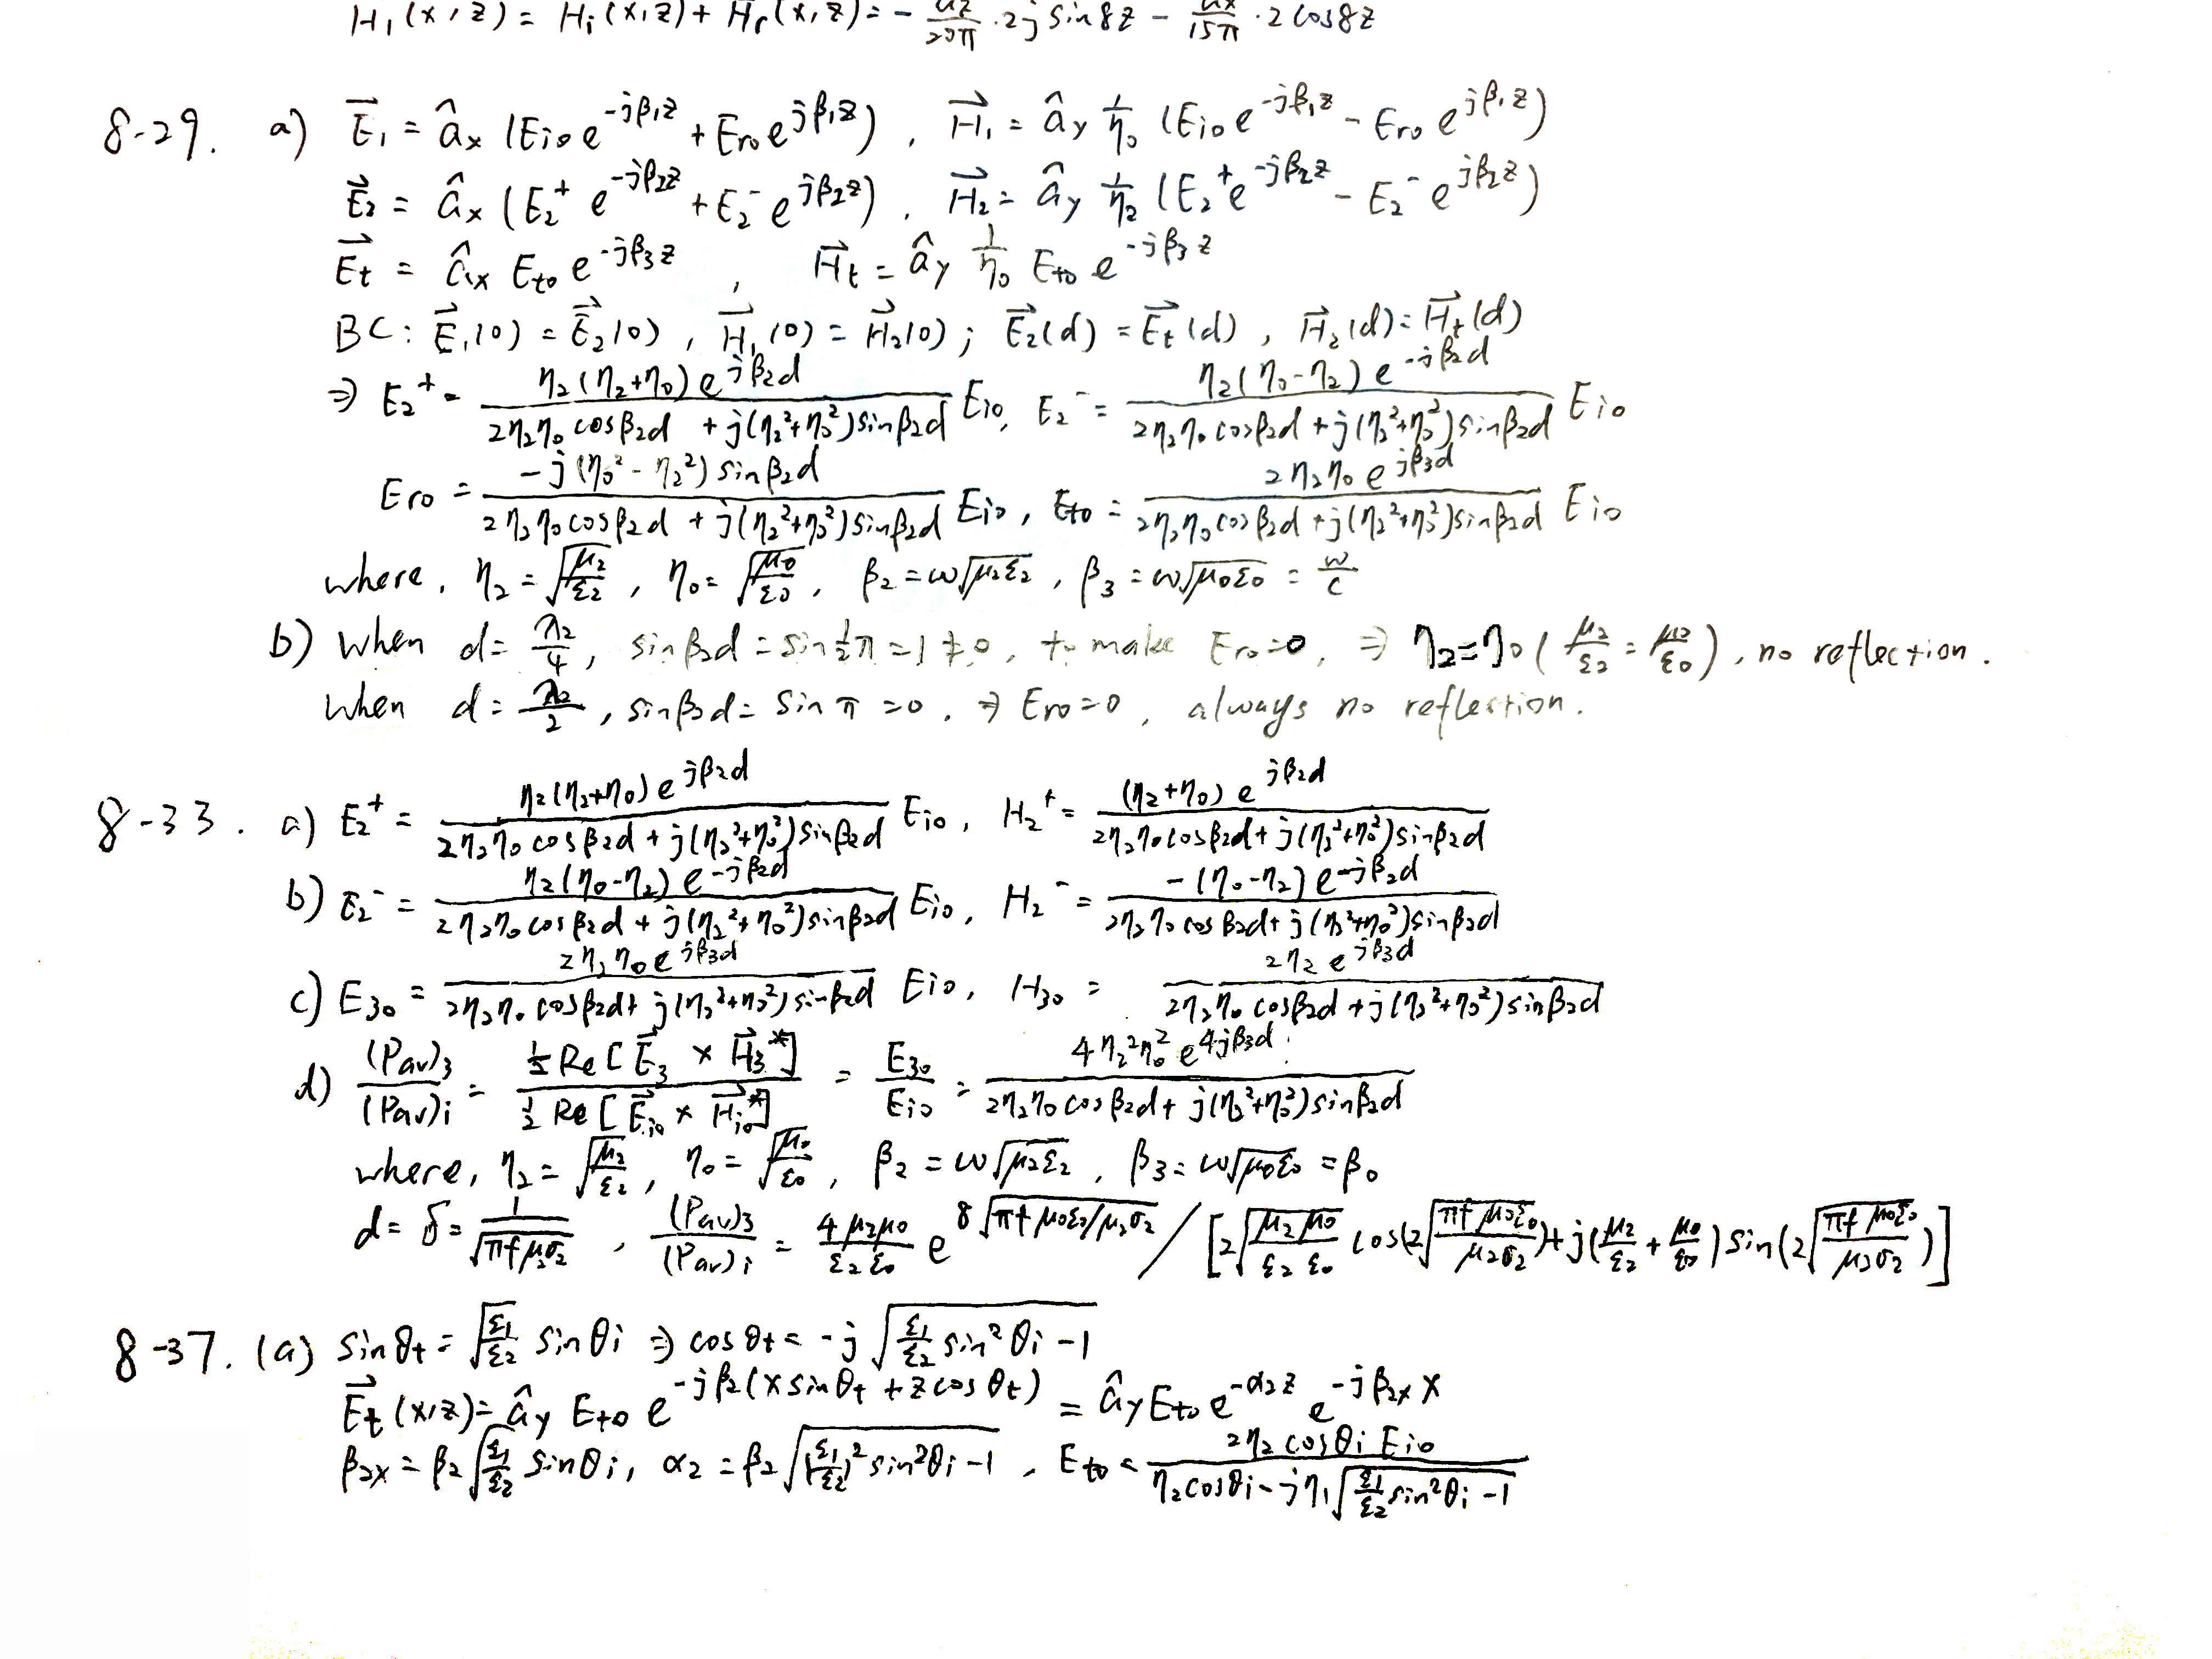 H₁(x,z) = Hᵢ(x,z) + Hᵣ(x,z) = - a_z/20π · 2j sin8z - a_x/15π · 2cos8z
8-29. a) E⃗₁ = â_x (E_i0 e^{-jβ₁z} + E_r0 e^{jβ₁z}), H⃗₁ = â_y 1/η₀ (E_i0 e^{-jβ₁z} - E_r0 e^{jβ₁z})
E⃗₂ = â_x (E₂⁺ e^{-jβ₂z} + E₂⁻ e^{jβ₂z}), H⃗₂ = â_y 1/η₂ (E₂⁺ e^{-jβ₂z} - E₂⁻ e^{jβ₂z})
E⃗t = â_x E_t0 e^{-jβ₃z}, H⃗t = â_y 1/η₀ E_t0 e^{-jβ₃z}
BC: E⃗₁(0) = E⃗₂(0), H⃗₁(0) = H⃗₂(0); E⃗₂(d) = E⃗t(d), H⃗₂(d) = H⃗t(d)
⇒ E₂⁺ = η₂(η₂+η₀)e^{jβ₂d} / (2η₂η₀cosβ₂d + j(η₂²+η₀²)sinβ₂d) E_i0, E₂⁻ = η₂(η₀-η₂)e^{-jβ₂d} / (2η₂η₀cosβ₂d + j(η₂²+η₀²)sinβ₂d) E_i0
E_r0 = -j(η₀²-η₂²)sinβ₂d / (2η₂η₀cosβ₂d + j(η₂²+η₀²)sinβ₂d) E_i0, E_t0 = 2η₂η₀e^{jβ₃d} / (2η₂η₀cosβ₂d + j(η₂²+η₀²)sinβ₂d) E_i0
where, η₂ = √(μ₂/ε₂), η₀ = √(μ₀/ε₀), β₂ = ω√(μ₂ε₂), β₃ = ω√(μ₀ε₀) = ω/c
b) when d = λ₂/4, sinβ₂d = sin½π = 1 ≠ 0, to make E_r0=0, ⇒ η₂=η₀ (μ₂/ε₂ = μ₀/ε₀), no reflection.
when d = λ₂/2, sinβ₂d = sin π = 0. ⇒ E_r0=0, always no reflection.
8-33. a) E₂⁺ = η₂(η₂+η₀)e^{jβ₂d} / (2η₂η₀cosβ₂d + j(η₂²+η₀²)sinβ₂d) E_i0, H₂⁺ = (η₂+η₀)e^{jβ₂d} / (2η₂η₀cosβ₂d + j(η₂²+η₀²)sinβ₂d)
b) E₂⁻ = η₂(η₀-η₂)e^{-jβ₂d} / (2η₂η₀cosβ₂d + j(η₂²+η₀²)sinβ₂d) E_i0, H₂⁻ = -(η₀-η₂)e^{-jβ₂d} / (2η₂η₀cosβ₂d + j(η₂²+η₀²)sinβ₂d)
c) E₃₀ = 2η₂η₀e^{jβ₃d} / (2η₂η₀cosβ₂d + j(η₂²+η₀²)sinβ₂d) E_i0, H₃₀ = 2η₂e^{jβ₃d} / (2η₂η₀cosβ₂d + j(η₂²+η₀²)sinβ₂d)
d) (Pav)₃/(Pav)i = ½Re[E⃗₃ × H⃗₃*] / ½Re[E⃗_i0 × H⃗_i0*] = E₃₀/E_i0 = 4η₂²η₀²e^{4jβ₃d} / (2η₂η₀cosβ₂d + j(η₂²+η₀²)sinβ₂d)
where, η₂ = √(μ₂/ε₂), η₀ = √(μ₀/ε₀), β₂ = ω√(μ₂ε₂), β₃ = ω√(μ₀ε₀) = β₀
d = δ = 1/√(πfμ₂σ₂), (Pav)₃/(Pav)i = 4μ₂μ₀/ε₂ε₀ e^{8√(πfμ₀ε₀/μ₂σ₂)} / [2√(μ₂μ₀/ε₂ε₀) cos(2√(πfμ₀ε₀/μ₂σ₂)) + j(μ₂/ε₂ + μ₀/ε₀) sin(2√(πfμ₀ε₀/μ₂σ₂))]
8-37. (a) sinθt = √(ε₁/ε₂) sinθi ⇒ cosθt = -j√(ε₁/ε₂ sin²θi - 1)
E⃗t(x,z) = â_y E_t0 e^{-jβ₂(x sinθt + z cosθt)} = â_y E_t0 e^{-α₂z} e^{-jβ₂ₓx}
β₂ₓ = β₂√(ε₁/ε₂) sinθi, α₂ = β₂√((ε₁/ε₂)² sin²θi - 1), E_t0 = 2η₂cosθi E_i0 / (η₂cosθi - jη₁√(ε₁/ε₂ sin²θi - 1))